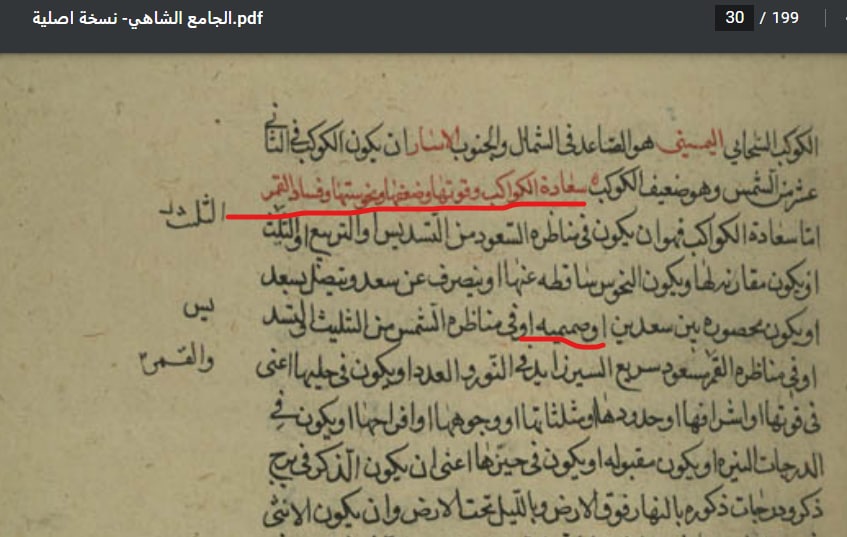 الجامع الشاهي- نسخة اصلية.pdf
30 / 199
الكوكب السحابي اليميني هو الصاعد في الشمال والجنوب الايسار ان يكون الكوكب في الثاني
عشر من الشمس وهو ضعيف الكوكب سعادة الكواكب وقوتها وضعفها ونحوستها وفساد القمر
اما سعادة الكواكب فهو ان يكون في مناظره السعود من التسديس او التربيع او التثليث
او يكون مقارنه لها ويكون النحوس ساقطه عنها او ينصرف عن سعد ويتصل بسعد
او يكون محصوره بين سعدين او صميميه او في مناظره الشمس من التثليث الى التسد
يس
او في مناظره القمر بسعود سريع السير زايد في النور والعدد او يكون في حلبها اعنى
والقمر
في قوتها او اشرافها او حدودها او مثلثاتها او وجوهها او افراحها او يكون في
الدرجات النيره او يكون مقبوله او يكون في حيزها اعنى ان يكون الذكر في برج
ذكر ودرجات ذكوره بالنهار فوق الارض وبالليل تحت الارض وان يكون الانثى